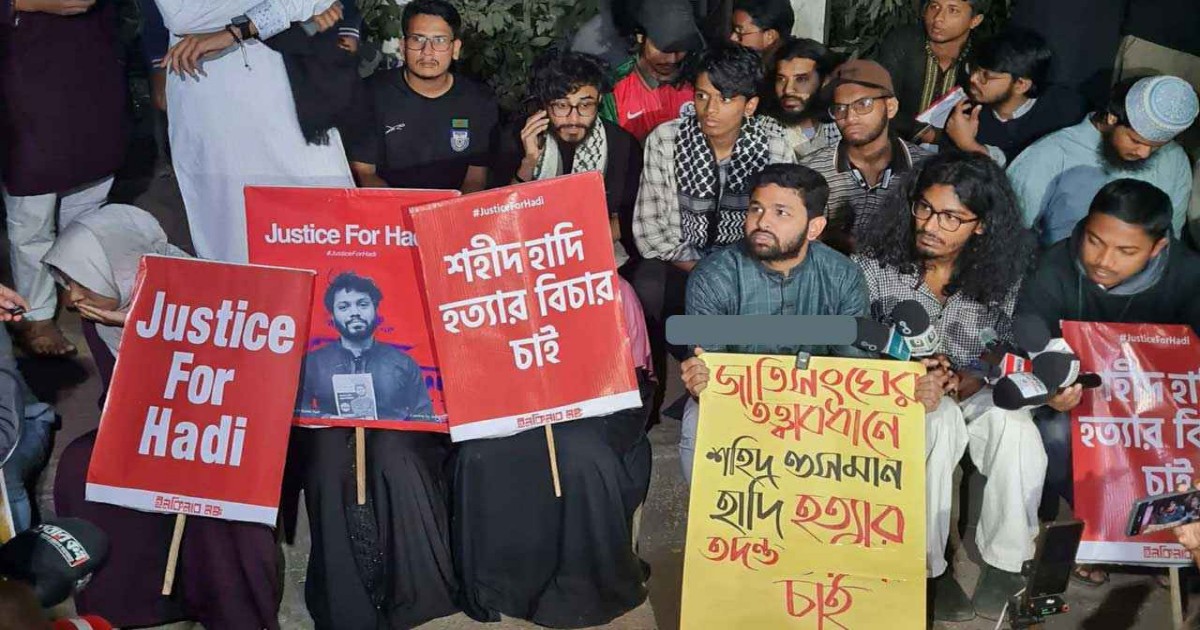 Justice
For
Hadi
ইনকিলাব মঞ্চ
Justice For Ha
#JusticeForHadi
#JusticeForHadi
শহীদ হাদি
হত্যার বিচার
চাই
ইনকিলাব মঞ্চ
জাতিসংঘের
তত্ত্বাবধানে
শহিদ ওসমান
হাদি হত্যার
তদন্ত
চাই
#JusticeForHadi
শহীদ হা
হত্যার বি
চাই